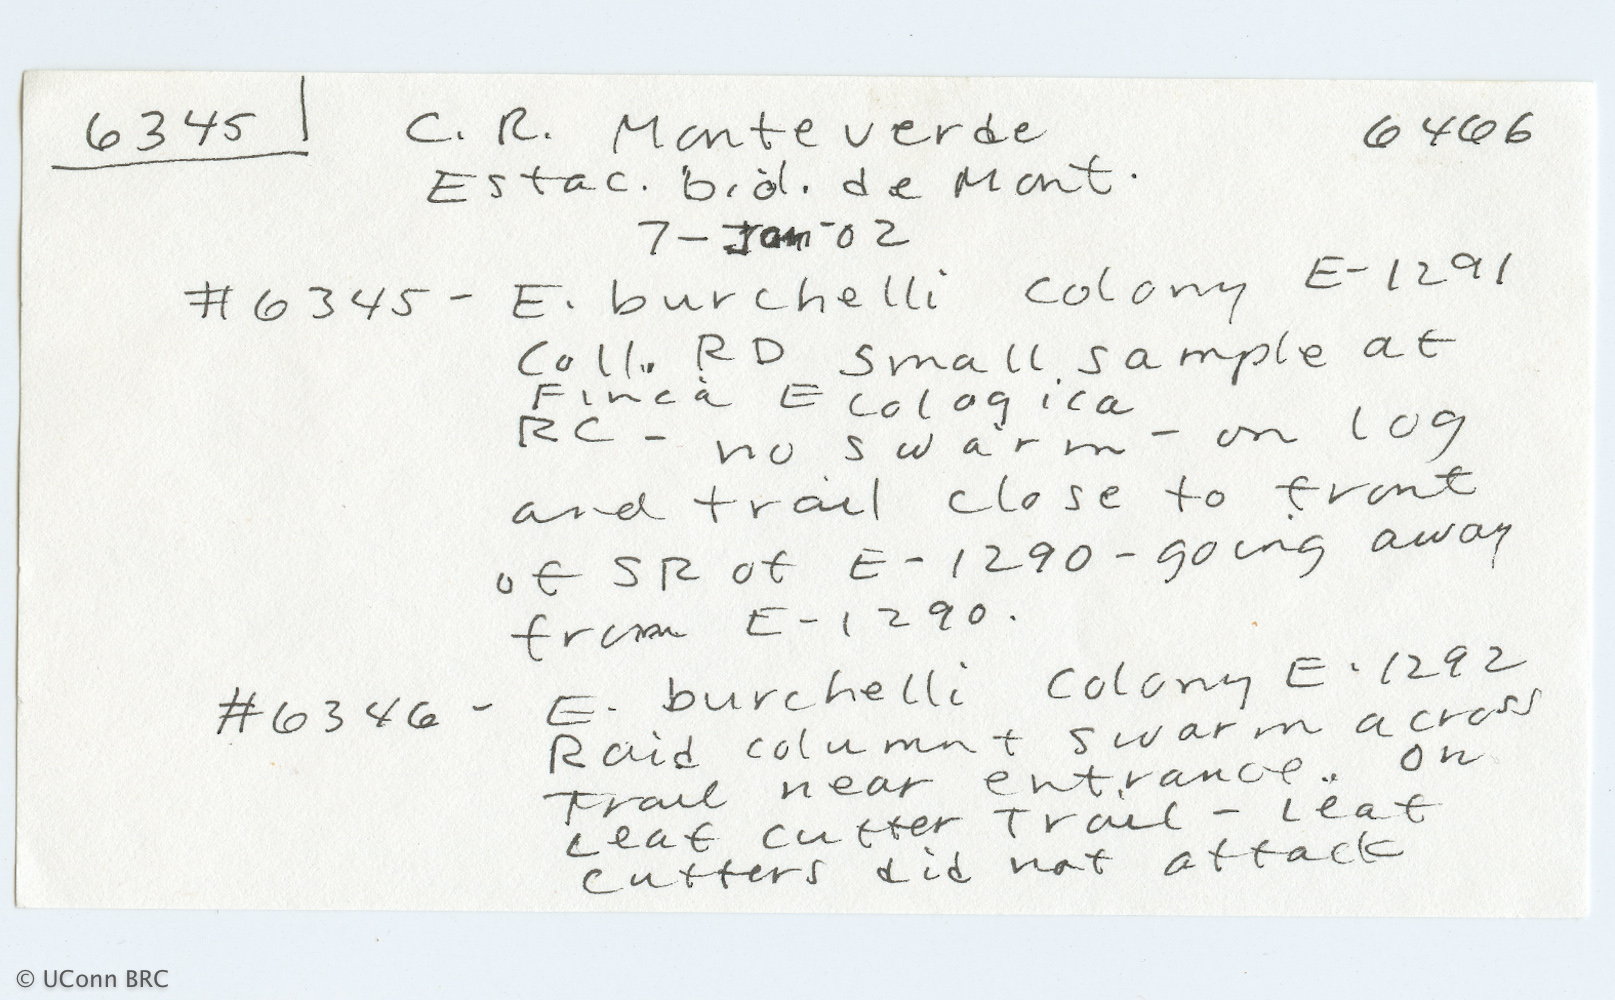 6345 C. R. Monteverde 6466
Estac. biol. de Mont.
7-Jan-02
#6345 - E. burchelli colony E-1291
Coll. RD small sample at
Finca Ecologica
RC - no swarm - on log
and trail close to front
of SR of E-1290 - going away
from E-1290.
#6346 - E. burchelli colony E-1292
Raid column + swarm across
Trail near entrance. On
Leaf cutter Trail - Leaf
cutters did not attack
© UConn BRC